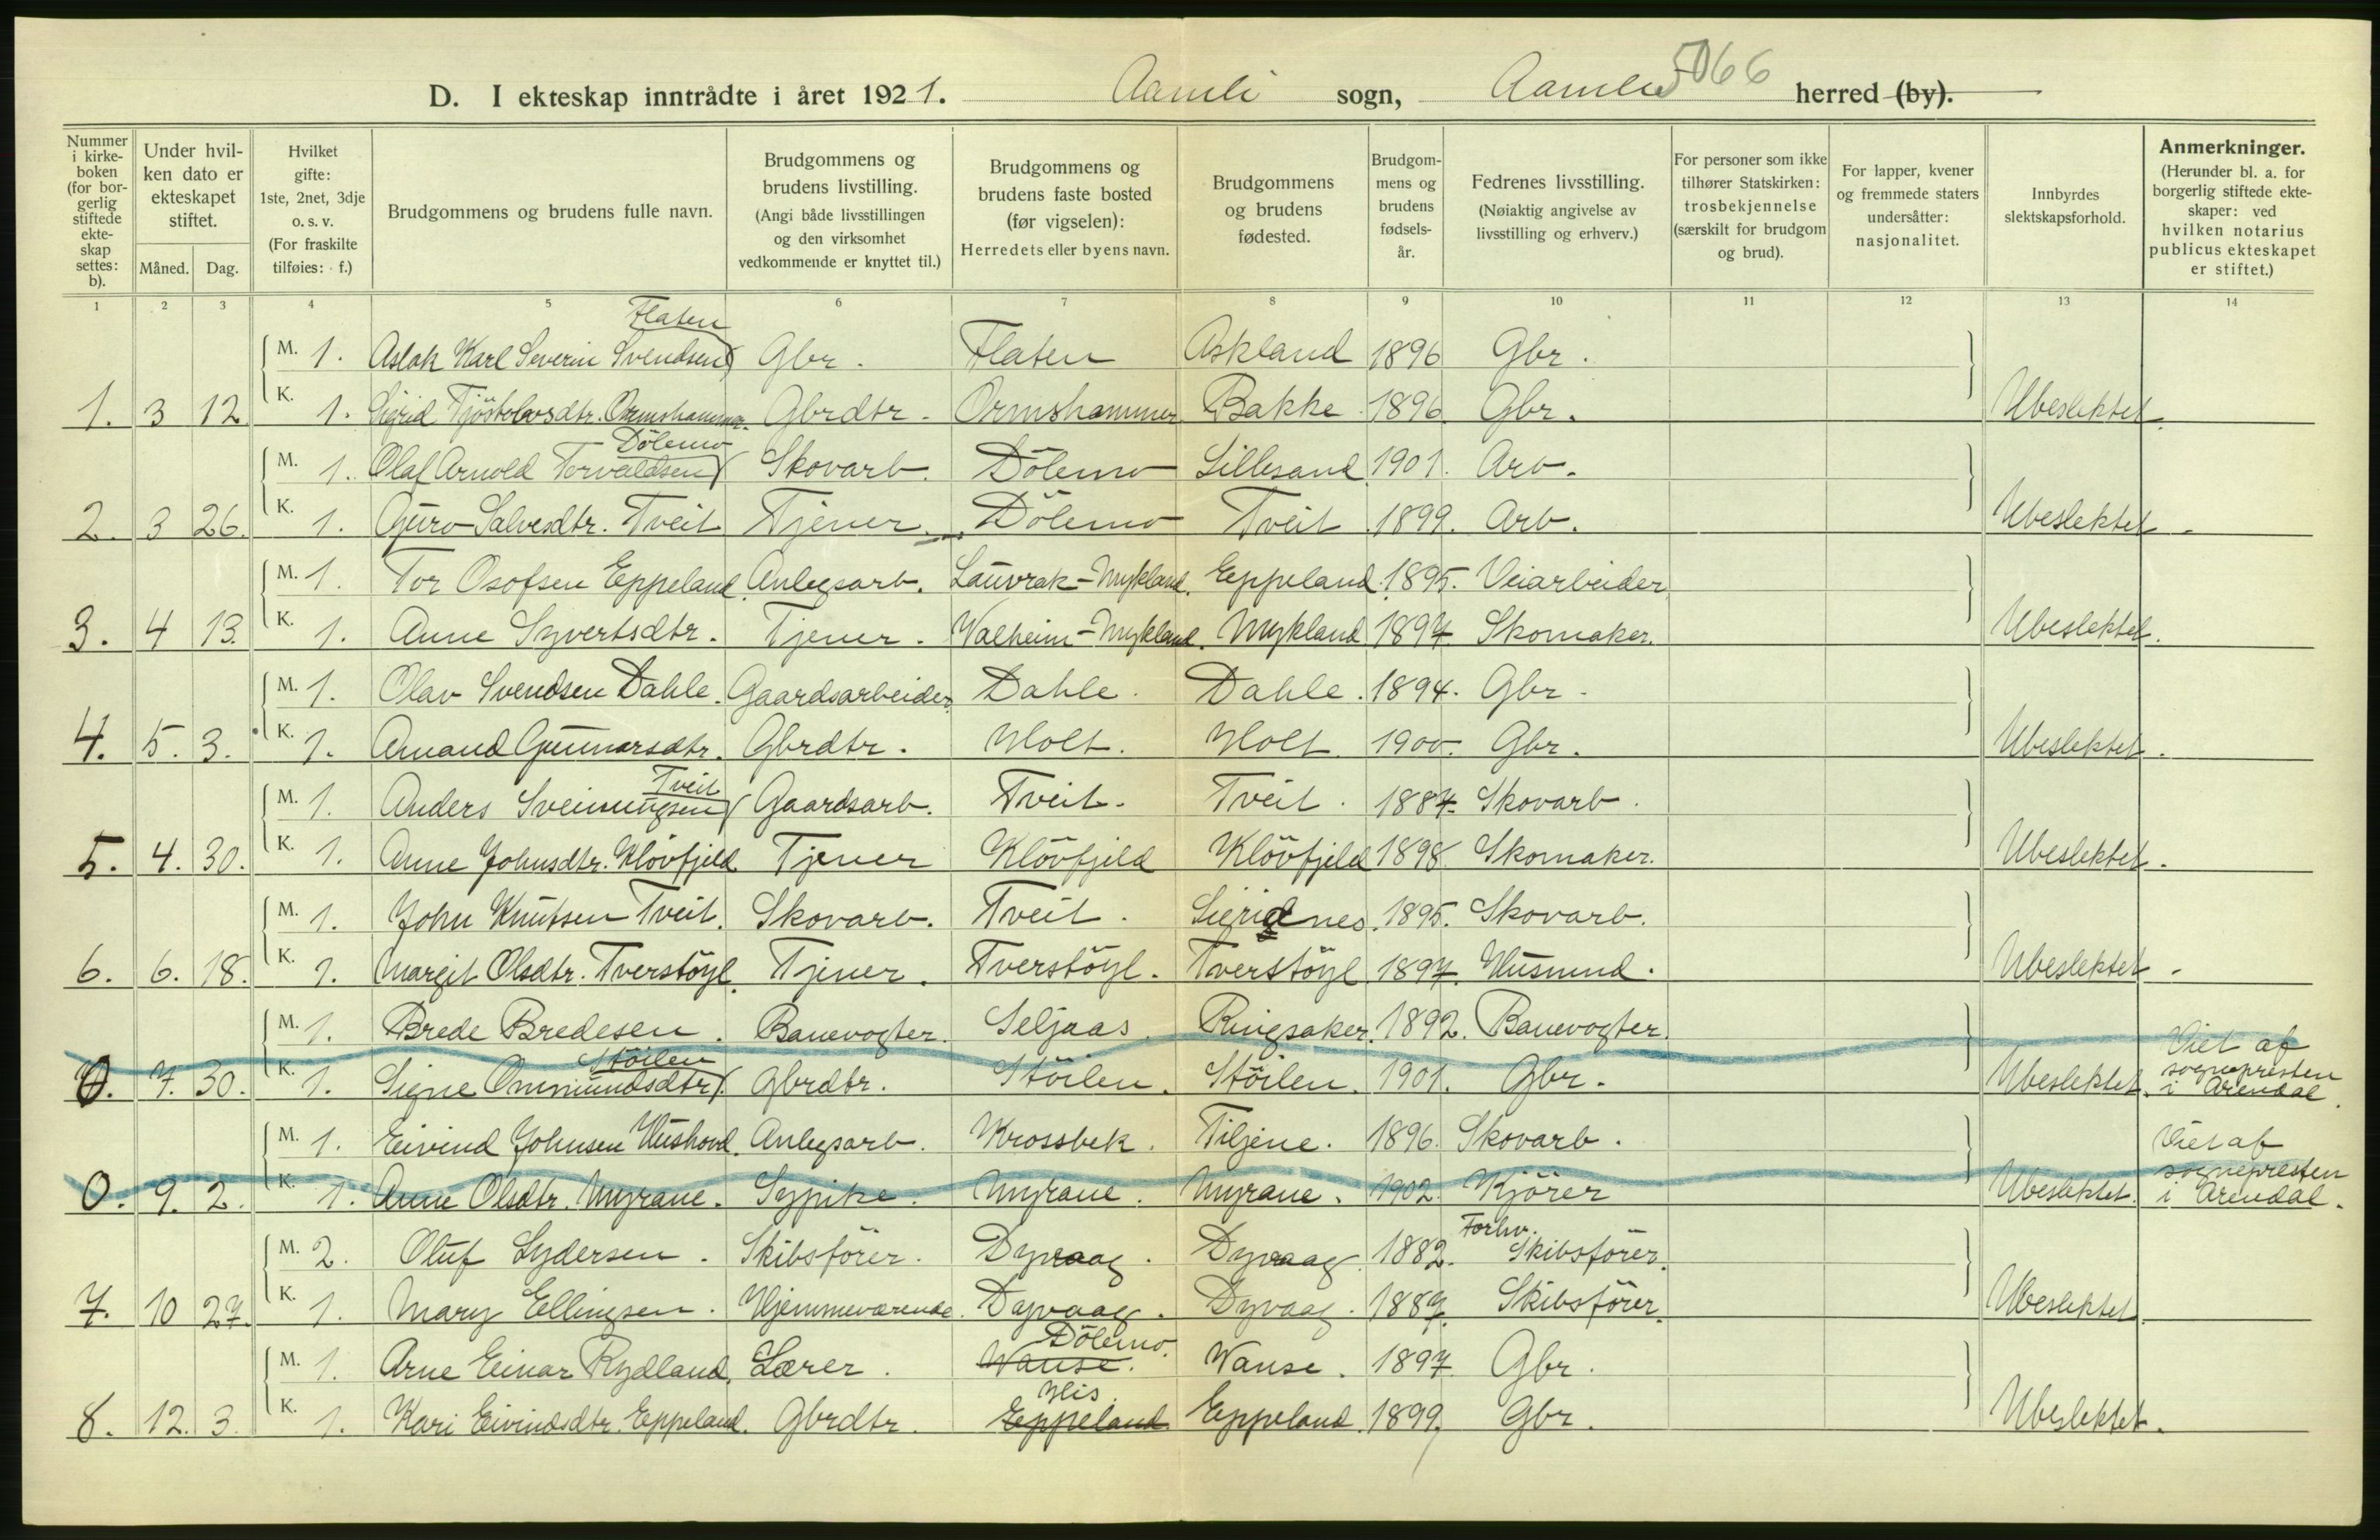 D. I ekteskap inntrådte i året 1921. Aamli sogn, Aamli 5066 herred (by).
Nummer i kirke-boken (for bor-gerlig stiftede ekte-skap settes: b).
Under hvil-ken dato er ekteskapet stiftet.
Måned. Dag.
Hvilket gifte: 1ste, 2net, 3dje o. s. v. (For fraskilte tilføies: f.)
Brudgommens og brudens fulle navn.
Brudgommens og brudens livstilling. (Angi både livsstillingen og den virksomhet vedkommende er knyttet til.)
Brudgommens og brudens faste bosted (før vigselen): Herredets eller byens navn.
Brudgommens og brudens fødested.
Brudgom-mens og brudens fødsels-år.
Fedrenes livsstilling. (Nøiaktig angivelse av livsstilling og erhverv.)
For personer som ikke tilhører Statskirken: trosbekjennelse (særskilt for brudgom og brud).
For lapper, kvener og fremmede staters undersåtter: nasjonalitet.
Innbyrdes slektskapsforhold.
Anmerkninger. (Herunder bl. a. for borgerlig stiftede ekte-skaper: ved hvilken notarius publicus ekteskapet er stiftet.)
1 2 3 4 5 6 7 8 9 10 11 12 13 14
Flaten
M. 1. Aslak Karl Severin Svendsen Gbr. Flaten Askland 1896 Gbr.
1. 3 12 K. 1. Sigrid Tjöstolvsdtr. Ormshammer. Gbrdtr. Ormshammer Bakke 1896 Gbr. Ubeslektet.
Dölemo
M. 1. Olaf Arnold Torvaldsen Skovarb. Dölemo Lillesand 1901. Arb.
2. 3 26. K. 1. Guro Salvesdtr. Tveit Tjener. Dölemo Tveit 1899. Arb. Ubeslektet.
M. 1. Tor Osofsen Eppeland Anlegsarb. Lauvrak-Mykland. Eppeland. 1895. Veiarbeider
3. 4 13. K. 1. Anne Syvertsdtr. Tjener. Walheim-Mykland. Mykland 1897. Skomaker. Ubeslektet.
M. 1. Olav Svendsen Dahle. Gaardsarbeider. Dahle. Dahle. 1894. Gbr.
4. 5. 3. K. 1. Amand Gunnarsdtr. Gbrdtr. Holt. Holt. 1900. Gbr. Ubeslektet.
Tveit
M. 1. Anders Sveinungsen Gaardsarb. Tveit. Tveit. 1887. Skovarb.
5. 4. 30. K. 1. Anne Johnsdtr. Klövfjeld Tjener Klövfjeld Klövfjeld 1898. Skomaker. Ubeslektet.
M. 1. John Knutsen Tveit. Skovarb. Tveit. Sigridnes. 1895. Skovarb.
6. 6. 18. K. 1. Margit Olsdtr. Tverstöyl. Tjener. Tverstöyl. Tverstöyl 1897. Husmnd. Ubeslektet.
M. 1. Brede Bredesen. Banevogter. Seljaas. Ringsaker. 1892. Banevogter.
Stöilen
0. 7. 30. K. 1. Signe Ommundsdtr. Gbrdtr. Stöilen. Stöilen. 1901. Gbr. Ubeslektet. Viet af sognepresten i Arendal.
M. 1. Eivind Johnsen Hushovd. Anlegsarb. Krossbek. Tiljene. 1896. Skovarb.
0. 9. 2. K. 1. Anne Olsdtr. Myrane. Sypike. Myrane. Myrane. 1902. Kjörer Ubeslektet. Viet af sognepresten i Arendal.
Forhv.
M. 2. Oluf Lydersen. Skibsförer. Dyvaag. Dyvaag. 1882. Skibsförer.
7. 10 27. K. 1. Mary Ellingsen. Hjemmeværende. Dyvaag. Dyvaag. 1889. Skibsförer. Ubeslektet.
Dölemo.
M. 1. Arne Einar Rydland. Lærer. Wanse. Wanse. 1897. Gbr.
His.
8. 12. 3. K. 1. Kari Eivindsdtr. Eppeland. Gbrdtr. Eppeland Eppeland. 1899. Gbr. Ubeslektet.